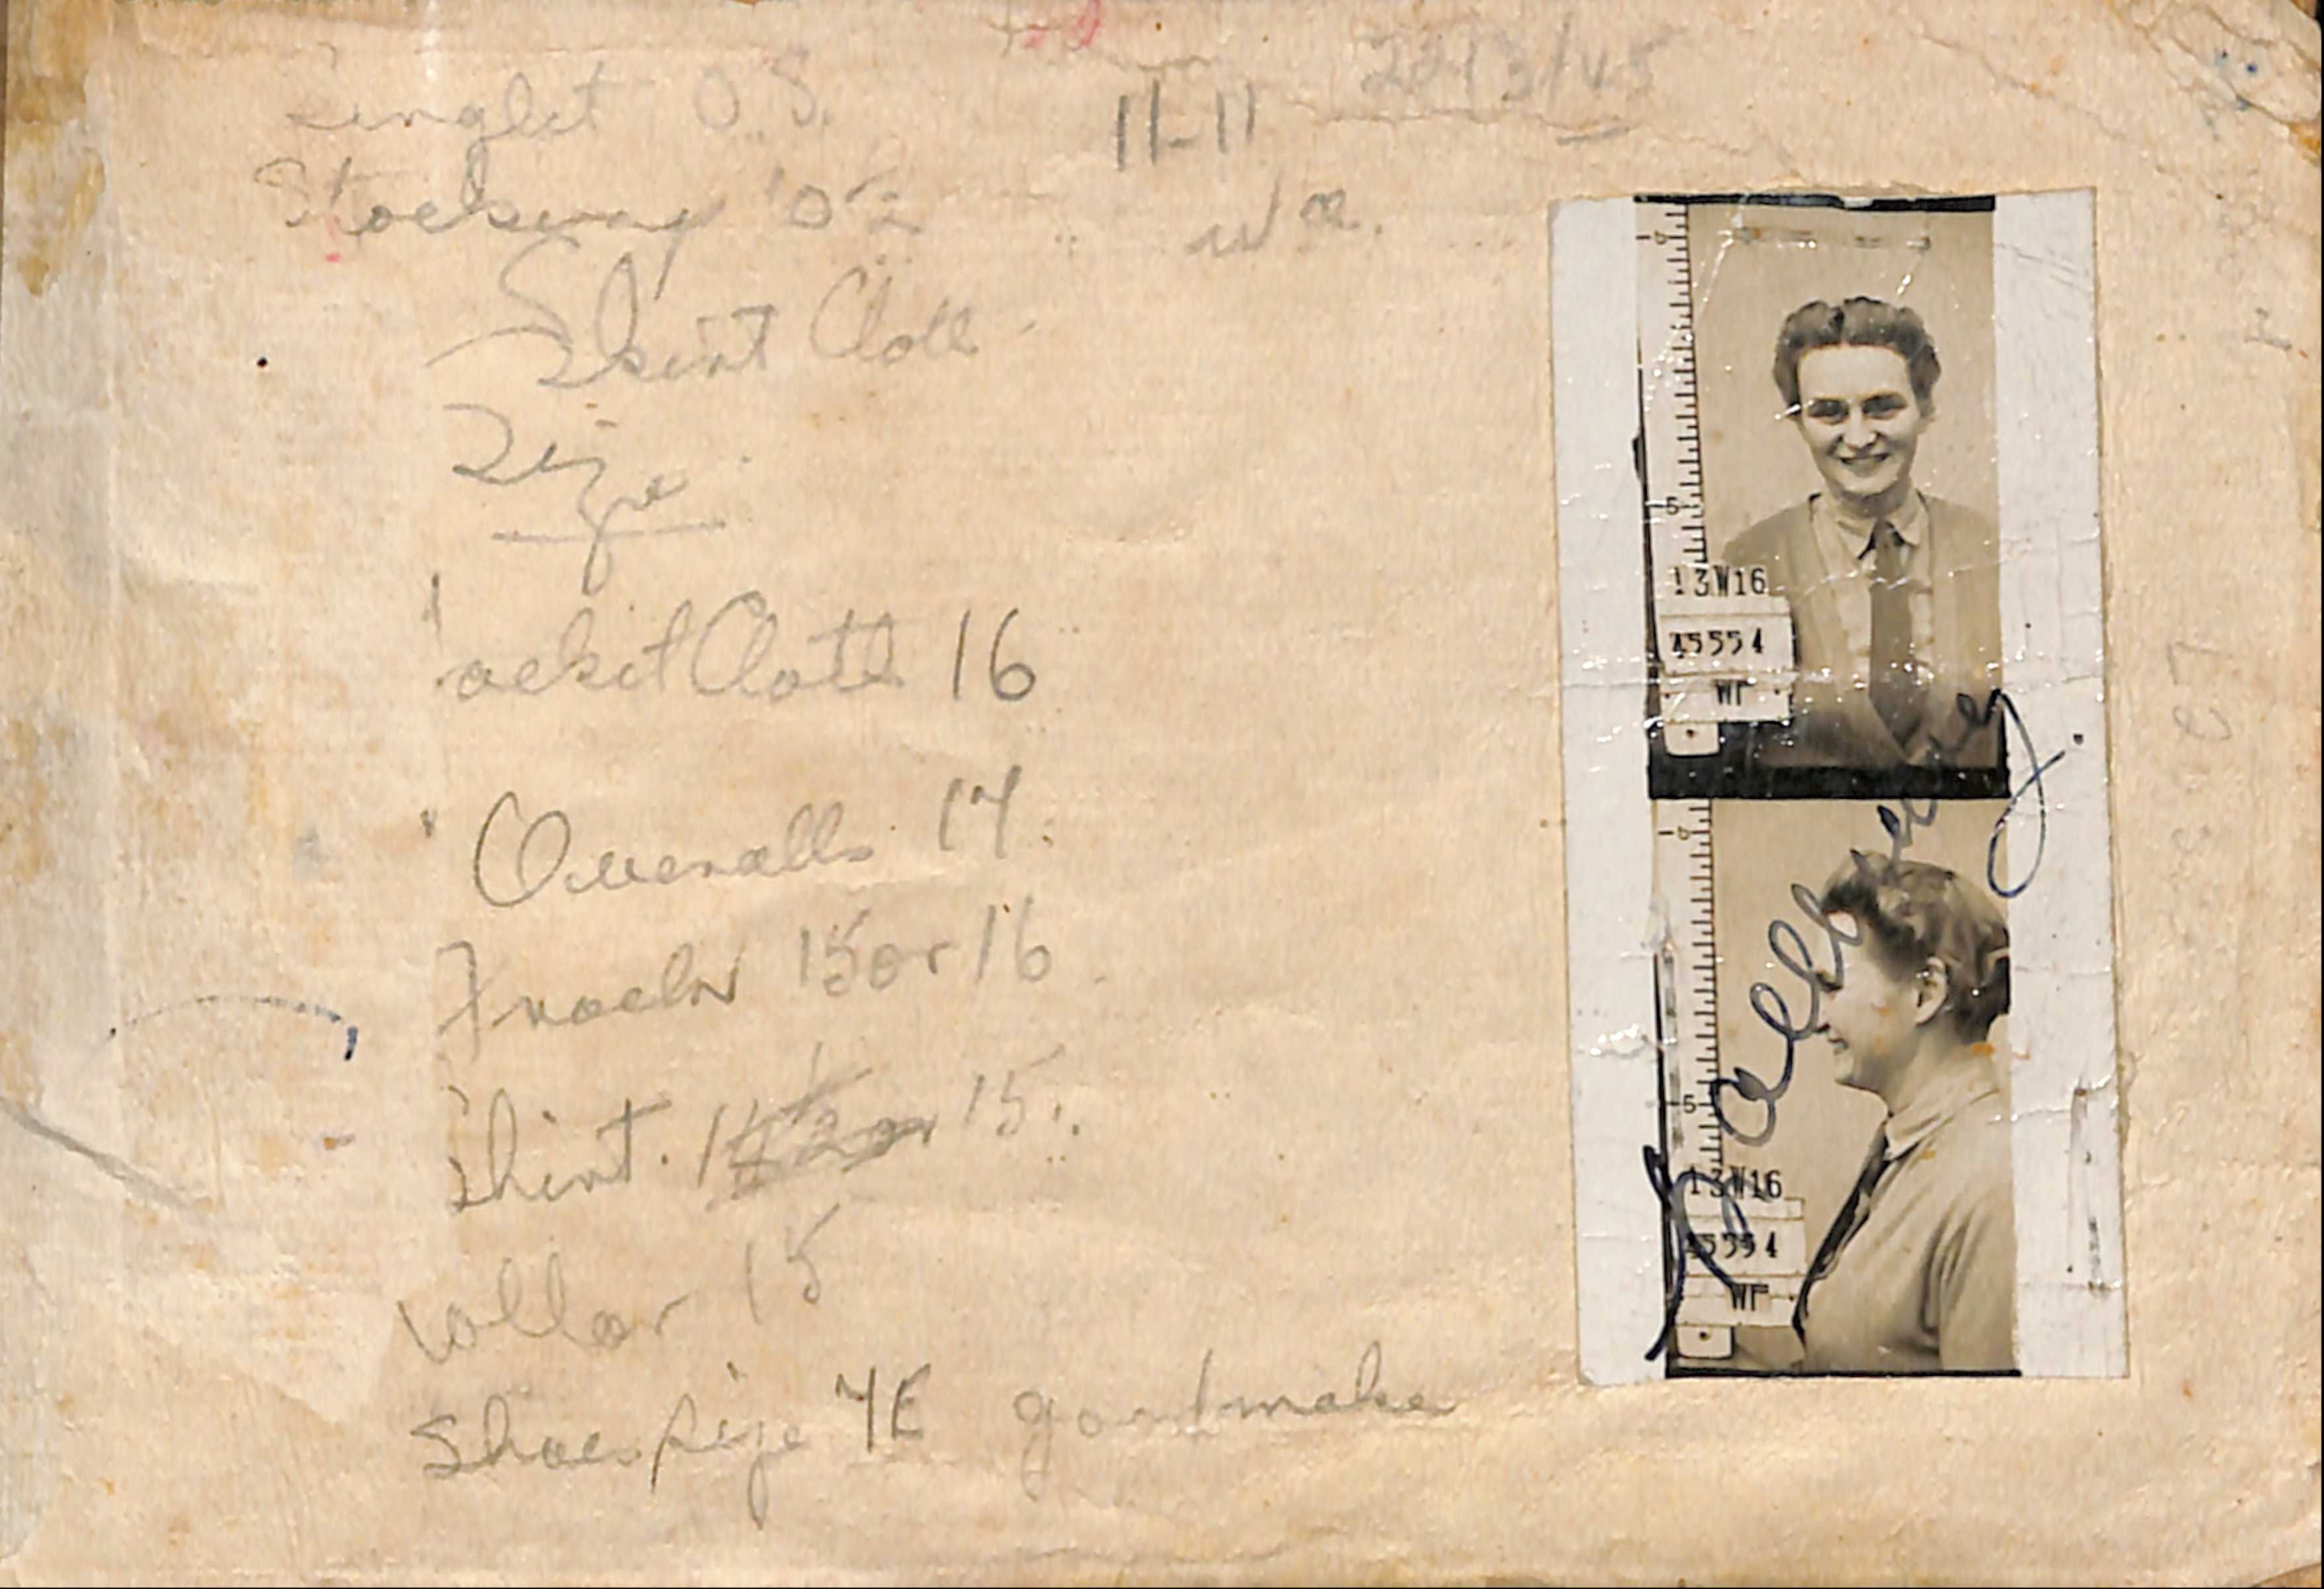 22/3/45
Singlet O.S. 11-11
Stockings 10½
Skirt Cloth
Size
Jacket Cloth 16
Overalls 17
Frocks 15 or 16
Shirt. 15.
Collar 15
Shoes size 7E goodmake
-6
5
13W16
45554
WF
-6
5
13W16
45554
WF